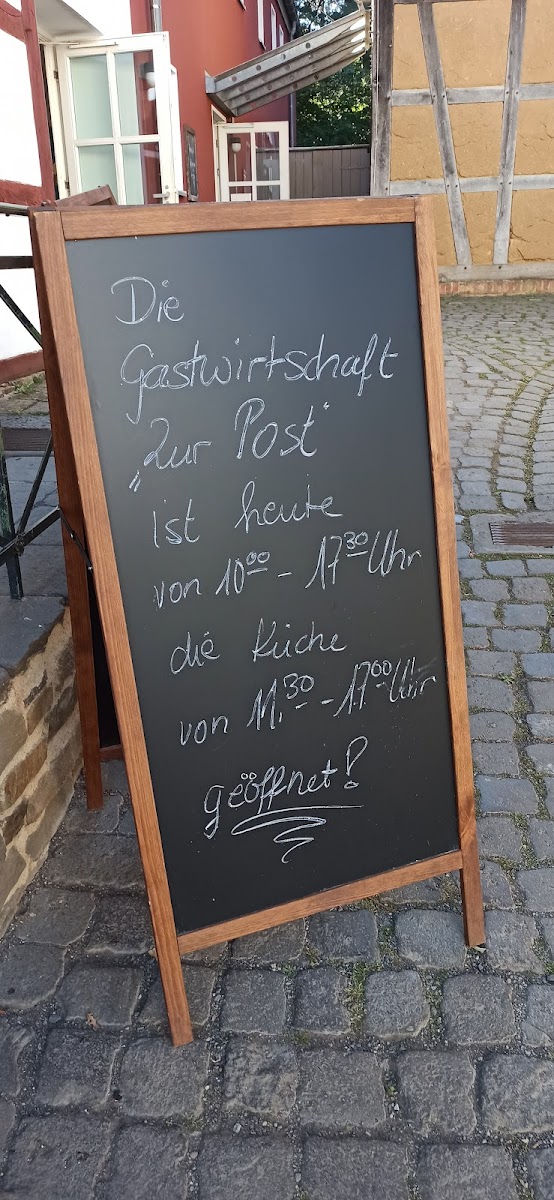 Die
Gastwirtschaft
„Zur Post"
ist heute
von 10⁰⁰ - 17³⁰ Uhr
die Küche
von 11.³⁰ - 17.⁰⁰ Uhr
geöffnet!